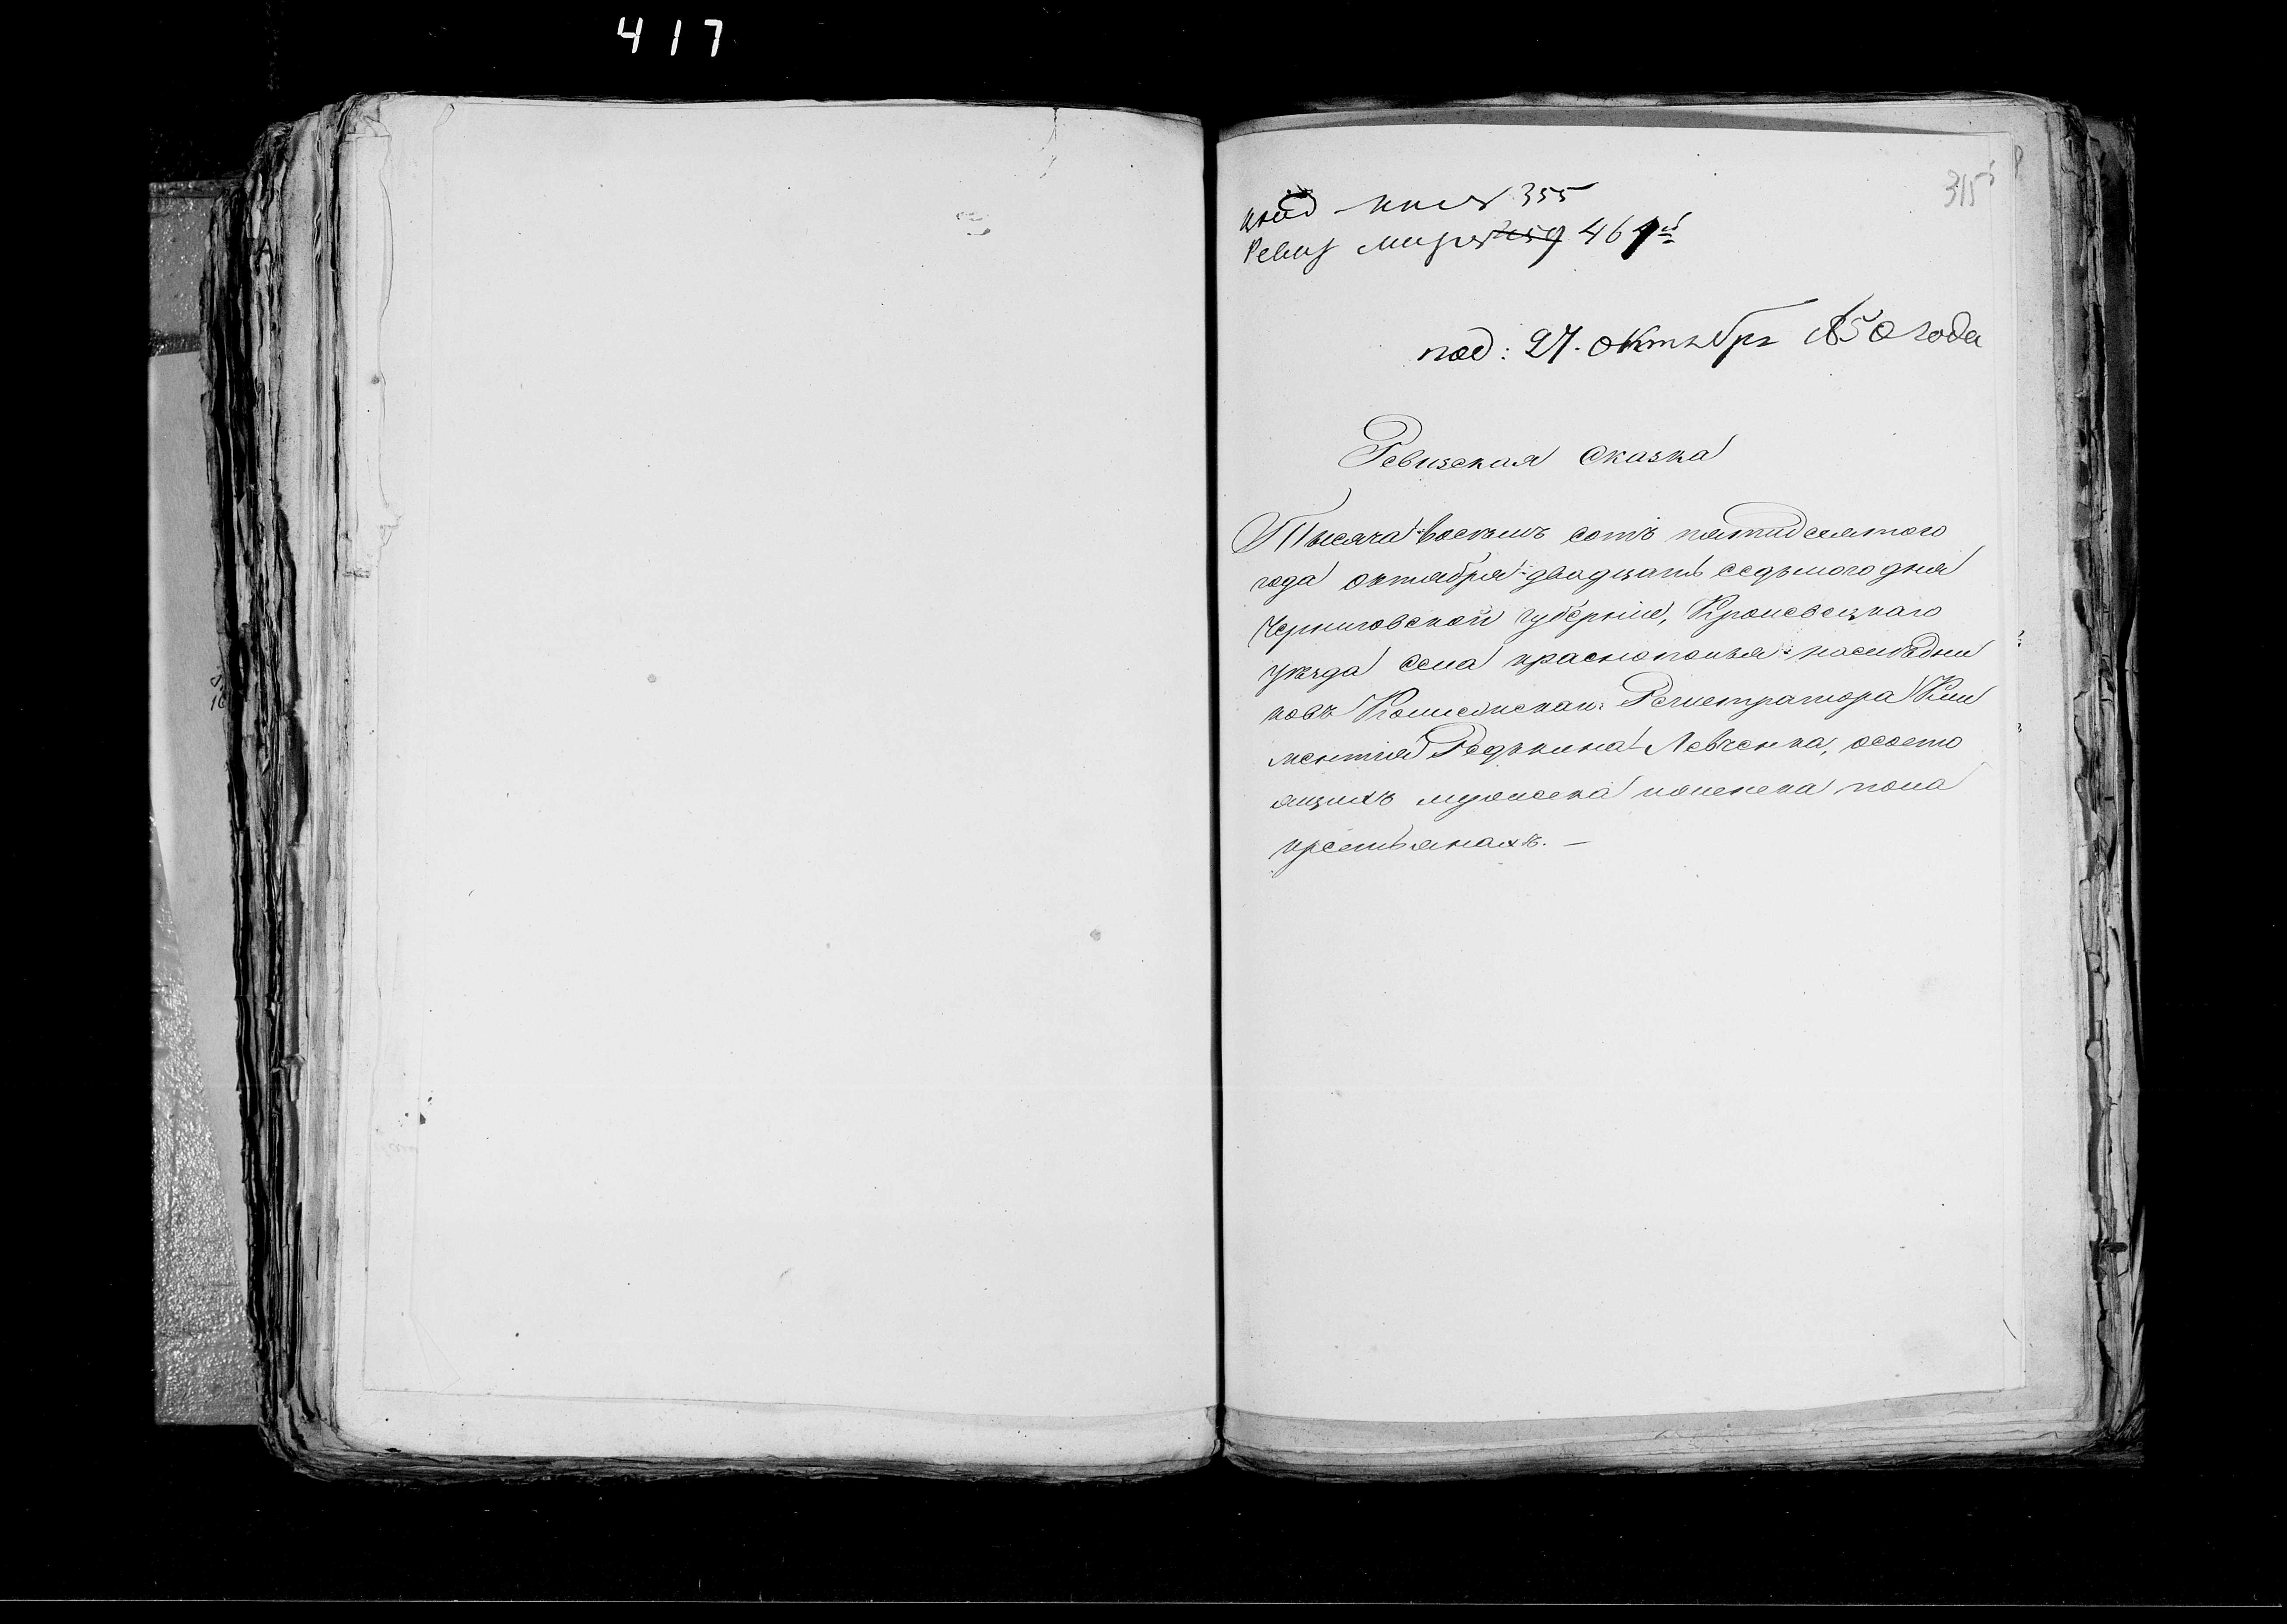 417
315
355
Ревиз 461
под: 27. октября 1850 года
Ревизская Сказка
Тысяча восемь сотъ пятидесятого
года октября двадцать седьмого дня
Черниговской губерніи, Кролевецкаго
уезда села краснополья наследни
ковъ Колежскаго Регистратора Кли
ментия Редькина Левченка, ососто
ящихъ мужеска и женска пола
крестьянахъ. —